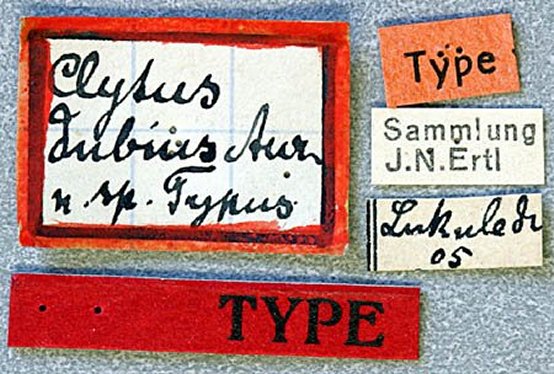 Clytus
dubius Aur.
n. sp. Typus
Type
Sammlung
J.N.Ertl
Lukuledi
05
TYPE